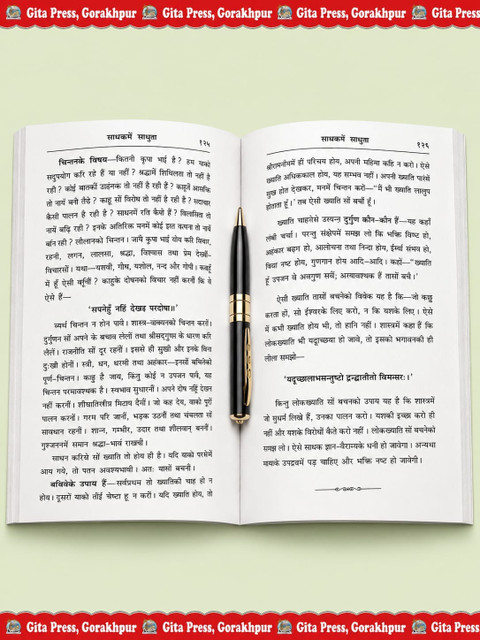 Gita Press, Gorakhpur Gita Press, Gorakhpur Gita Press, Gorakhpur Gita Press
साधकमें साधुता १२५
चिन्तनके विषय—कितनी कृपा भाई है? हम याको
सदुपयोग करि रहे हैं या नहीं? श्रद्धामें शिथिलता तो नहीं है
रही? कोई बातकी डाहनक तो नहीं है रही है? काहूमें आसक्ति
तो नायँ बनी रहै है? काहू सों विरोध तो नहीं है रही है? सदाचार
कैसी पालन है रही है? साधनमें रति कैसी है? विलासिता तो
नायँ बढ़ि रही? इनके अतिरिक्त मनमें कोई इतर कल्पना तो नायँ
बनि रही? लीलानको चिन्तन। जापै कृपा भाई योय करि विचार,
रहनी, लगन, लालसा, श्रद्धा, विश्वास तथा प्रेम देखौं-
विचारसों। यथा—यशस्वी, गोध, यशोल, नन्द और गोपी। कबहूँ
में हूँ ऐसी बनूँगौ? काहूके दोषनको विचार नहीं करनौं कि वे
ऐसे हैं—
'सपनेहुँ नहिं देखब परदोषा॥'
व्यर्थ चिन्तन न होन पावे। शास्त्र-वाक्यनको चिन्तन करतें।
दुर्गुणन सों अपने के बचाव लेलें तथा श्रीसद्गुरुके धारण करि
लेलें। राजनीति सों दूर रहनौं। इससे ही सुखी और इनके बिना
दुःखी होनौं। स्त्री, धन, धरणी तथा अहंकार—इनसों बचिलेको
पूर्ण-चिन्तन। काहू है जाय, किंतु कोई न उपजन पावे, यह
चिन्तन परमावश्यक है। स्वभाव सुधारनौं। अपने दोष नहिं देखन
नहीं करनौं। शीघ्रातिशीघ्र मिटाय देनौं। जो कह देय, वाको पूर्ण
पालन करनौं। गरम परि जानौं, भड़क उठनौं तथा चंचलता सों
सावधान रहनौं। शान्त, गम्भीर, उदार तथा शीलवान् बननौं।
गुरुजननमें समान श्रद्धा-भाव राखनौं।
साधन करिबे सों ख्याति तो होय ही है। यदि याको परमेमें
आय गये, तो पतन अवश्यम्भावी। अतः यासों बचनौं।
बचिवेके उपाय हैं—सर्वप्रथम तो ख्यातिकी चाह हो न
होय। दूसरों याको तोई चेष्टा हू न करनौं। यदि ख्याति होय, तो
साधकमें साधुता १२६
श्रीराधनीगमें ही परिचय होय, अपनी महिमा कहि न करो। ऐसे
ख्याति अधिककाल होय, यह सम्भव नहीं। अपनी ख्याति पारंमें
मुख होत देखकर, मनमें चिन्तन करो—"मैं भी ख्याति लालुप
होताता हूँ।" तब ऐसी ख्याति सों बचौं हूँ।
ख्याति चाहनेसे उत्पन्न दुर्गुण कौन-कौन हैं—यह कहाँ
लंबी चर्चा। परन्तु संक्षेपमें समझ लो कि भक्ति विघ्न हो,
अहंकार बढ़ान हो, आलोचना तथा निन्दा होय, ईर्ष्या संभव हो,
क्रिया नष्ट होय, गुणगान होय आदि-आदि। कहौ—"ख्याति
हूँ उपजन वे अवगुण समें; अस्वावश्यक हैं तासों बचैं।'
ऐसी ख्याति तासों बचनेको विवेक यह है कि—जो कछु
करता हों, सो ईश्वरके लिए करो, न कि यशके लिए। ऐसे
में कभी ख्याति होय भी, तो हानि नहीं। शास्त्रमें कहा हैं कि
लोकख्याति भी यदृच्छया हो जावे, तो इसको भगवानकी ही
लीला समझो—
'यदृच्छालाभसन्तुष्टो द्वन्द्वातीतो विमत्सरः।'
किन्तु लोकख्याति सों बचनको उपाय यह है कि शास्त्रमें
जो सुधर्म लिखे हैं, उनका पालन करो। यशकी इच्छा करो ही
नहीं और यशके विरोधी कैसे करो नहीं। लोकख्याति सों बचनेको
समझ लो। ऐसे साधक ज्ञान-वैराग्यके धनी हो जावेगा। अन्यथा
मायाके उपद्रवमें पड़ चाहिए और भक्ति नष्ट हो जावेगी।
Gita Press, Gorakhpur Gita Press, Gorakhpur Gita Press, Gorakhpur Gita Press